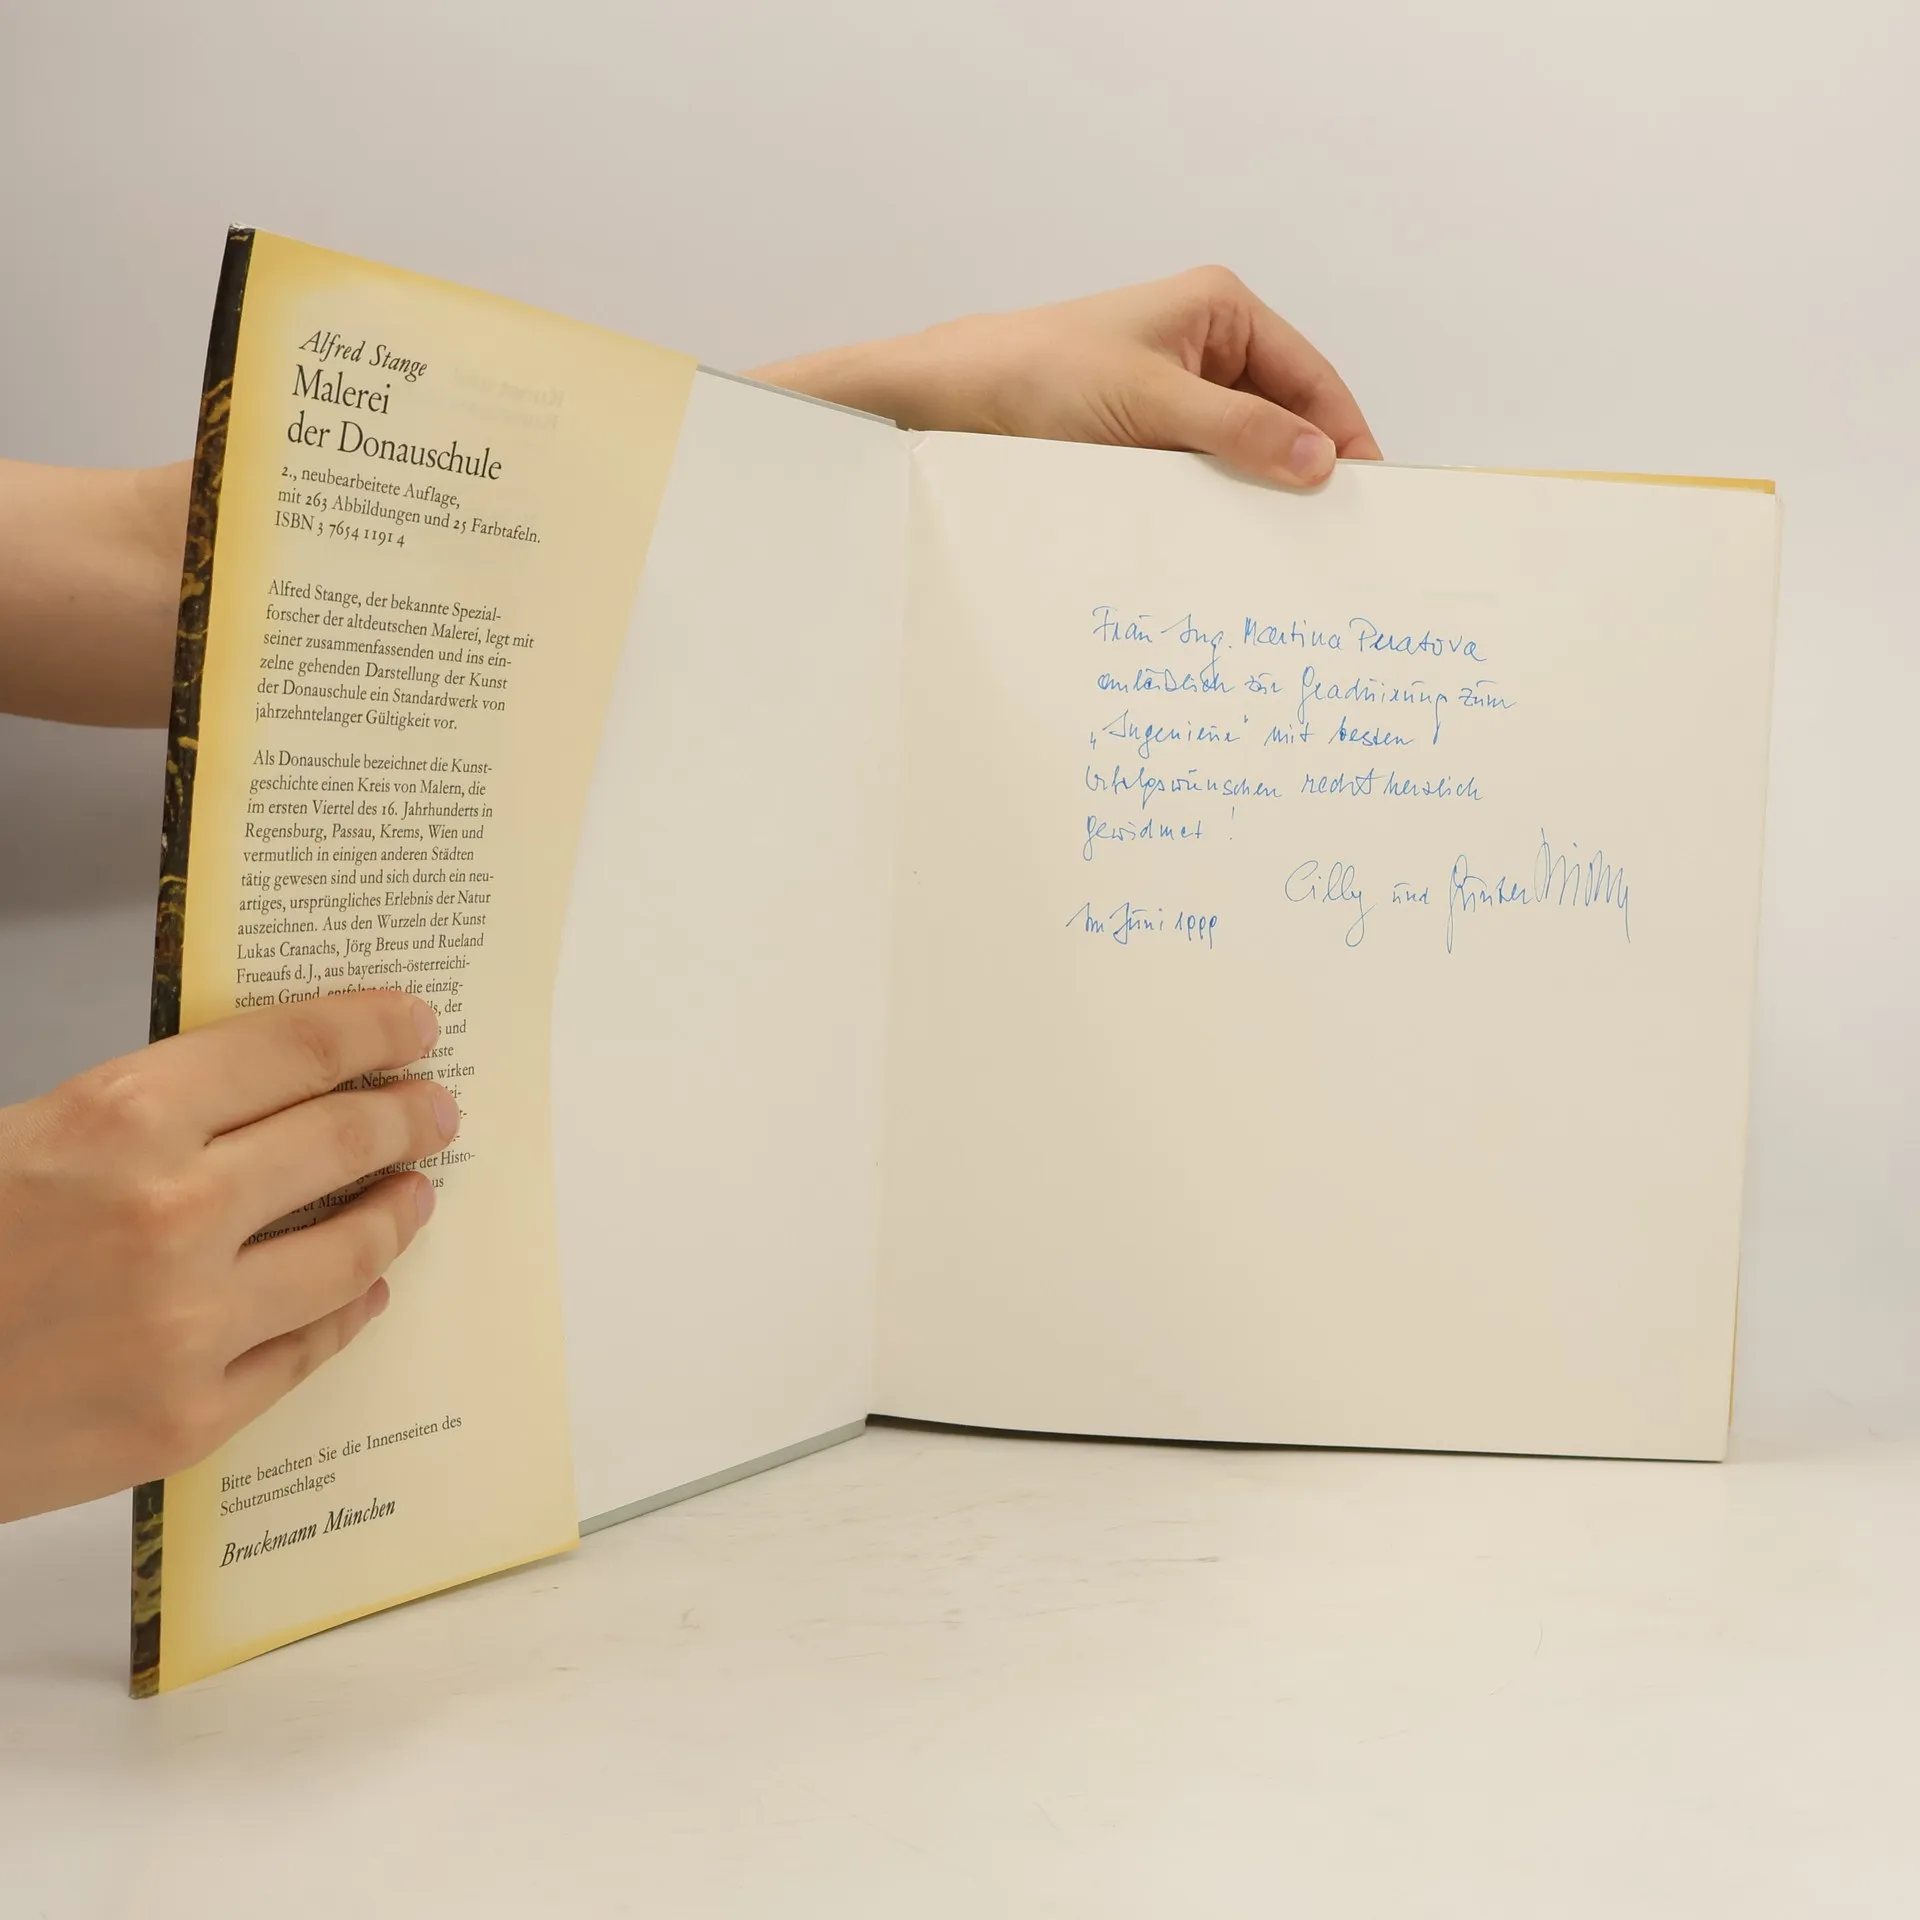 Alfred Stange
Malerei
der Donauschule
2., neubearbeitete Auflage,
mit 263 Abbildungen und 25 Farbtafeln.
ISBN 3 7654 1191 4
Alfred Stange, der bekannte Spezial-
forscher der altdeutschen Malerei, legt mit
seiner zusammenfassenden und ins ein-
zelne gehenden Darstellung der Kunst
der Donauschule ein Standardwerk von
jahrzehntelanger Gültigkeit vor.
Als Donauschule bezeichnet die Kunst-
geschichte einen Kreis von Malern, die
im ersten Viertel des 16. Jahrhunderts in
Regensburg, Passau, Krems, Wien und
vermutlich in einigen anderen Städten
tätig gewesen sind und sich durch ein neu-
artiges, ursprüngliches Erlebnis der Natur
auszeichnen. Aus den Wurzeln der Kunst
Lukas Cranachs, Jörg Breus und Rueland
Frueaufs d. J., aus bayerisch-österreichi-
schem Grund entfaltet sich die einzig-
der
und
Neben ihnen wirken
Meister der Histo-
Bitte beachten Sie die Innenseiten des
Schutzumschlages
Bruckmann München
Frau Ing. Martina
anläßlich zur Graduirung zum
„Ingenieur" mit besten
Erfolgswünschen recht herzlich
gewidmet !
Cilly und Günter
Im Juni 1999